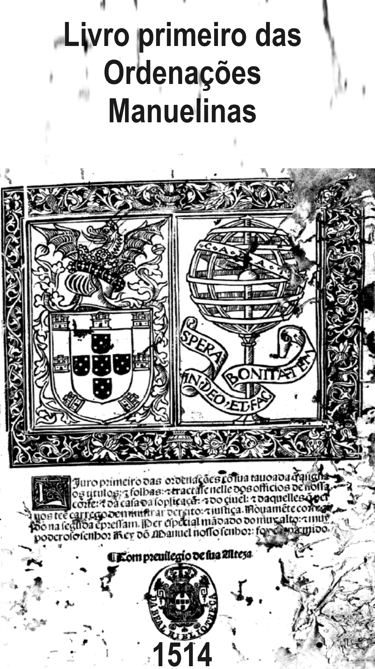 Livro primeiro das
Ordenações
Manuelinas
SPERA
IN DEO, ET FAC
BONITATEM
Liuro primeiro das ordenações cõ sua tauoada q̃ assigna
os titulos: ⁊ folhas: ⁊ tractase nelle dos officios de nossa
corte: ⁊ da casa da soplicaçã: ⁊ do ciuel: ⁊ daquelles q̃
teẽ carrego de ministrar dereito: ⁊ justiça. Nouamẽte
na segũda ẽpressam. Per especial mãdado do muy alto: ⁊ muy
poderoso senhor Rey dõ Manuel nosso senhor:
Com preuilegio de sua Alteza
DA REAL BIBLIOTHECA
1514